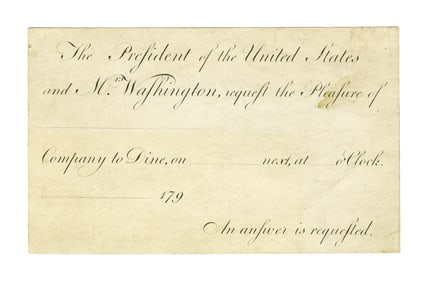 The Preſident of the United States
and Mrs. Waſhington, requeſt the Pleaſure of
Company to Dine, on next, at o'Clock.
179
An anſwer is requeſted.